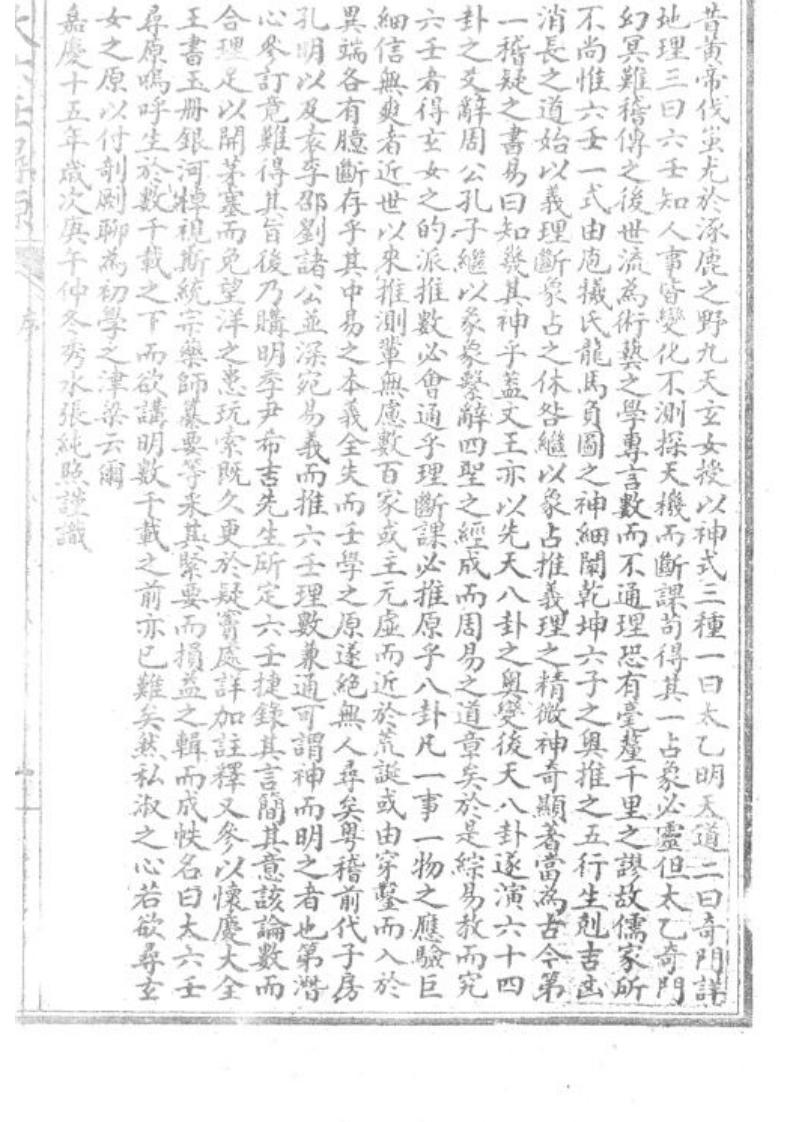 昔黃帝伐蚩尤於涿鹿之野九天玄女授以神式三種一曰太乙明天道二曰奇門詳
地理三曰六壬知人事皆變化不測探天機而斷課苟得其一占象必靈但太乙奇門
幻冥難稽傳之後世流為術藝之學專言數而不通理恐有毫釐千里之謬故儒家所
不尚惟六壬一式由庖羲氏龍馬負圖之神細闡乾坤六子之奧推之五行生剋吉凶
消長之道始以義理斷象占之休咎繼以象占推義理之精微神奇顯著當為古今第
一稽疑之書易曰知幾其神乎蓋文王亦以先天八卦之奧變後天八卦遂演六十四
卦之爻辭周公孔子繼以彖象繫辭四聖之經成而周易之道章矣於是綜易教而究
六壬者得玄女之的派推數必會通乎理斷課必推原乎八卦凡一事一物之應驗巨
細信無爽者近世以來推測輩無慮數百家或主元虛而近於荒誕或由穿鑿而入於
異端各有臆斷存乎其中易之本義全失而壬學之原遂絕無人尋矣粵稽前代子房
孔明以及袁李邵劉諸公並深宛易義而推六壬理數兼通可謂神而明之者也第潛
心參訂竟難得其旨後乃購明季尹希吉先生所定六壬捷錄其言簡其意該論數而
合理足以開茅塞而免望洋之患玩索既久更於疑竇處詳加註釋又參以懷慶大全
王書玉册銀河棹視斯統宗藥師纂要等釆其緊要而損益之輯而成帙名曰大六壬
尋原嗚呼生於數千載之下而欲講明數千載之前亦已難矣然私淑之心若欲尋玄
女之原以付剞劂聊為初學之津梁云爾
嘉慶十五年歲次庚午仲冬秀水張純照謹識
序